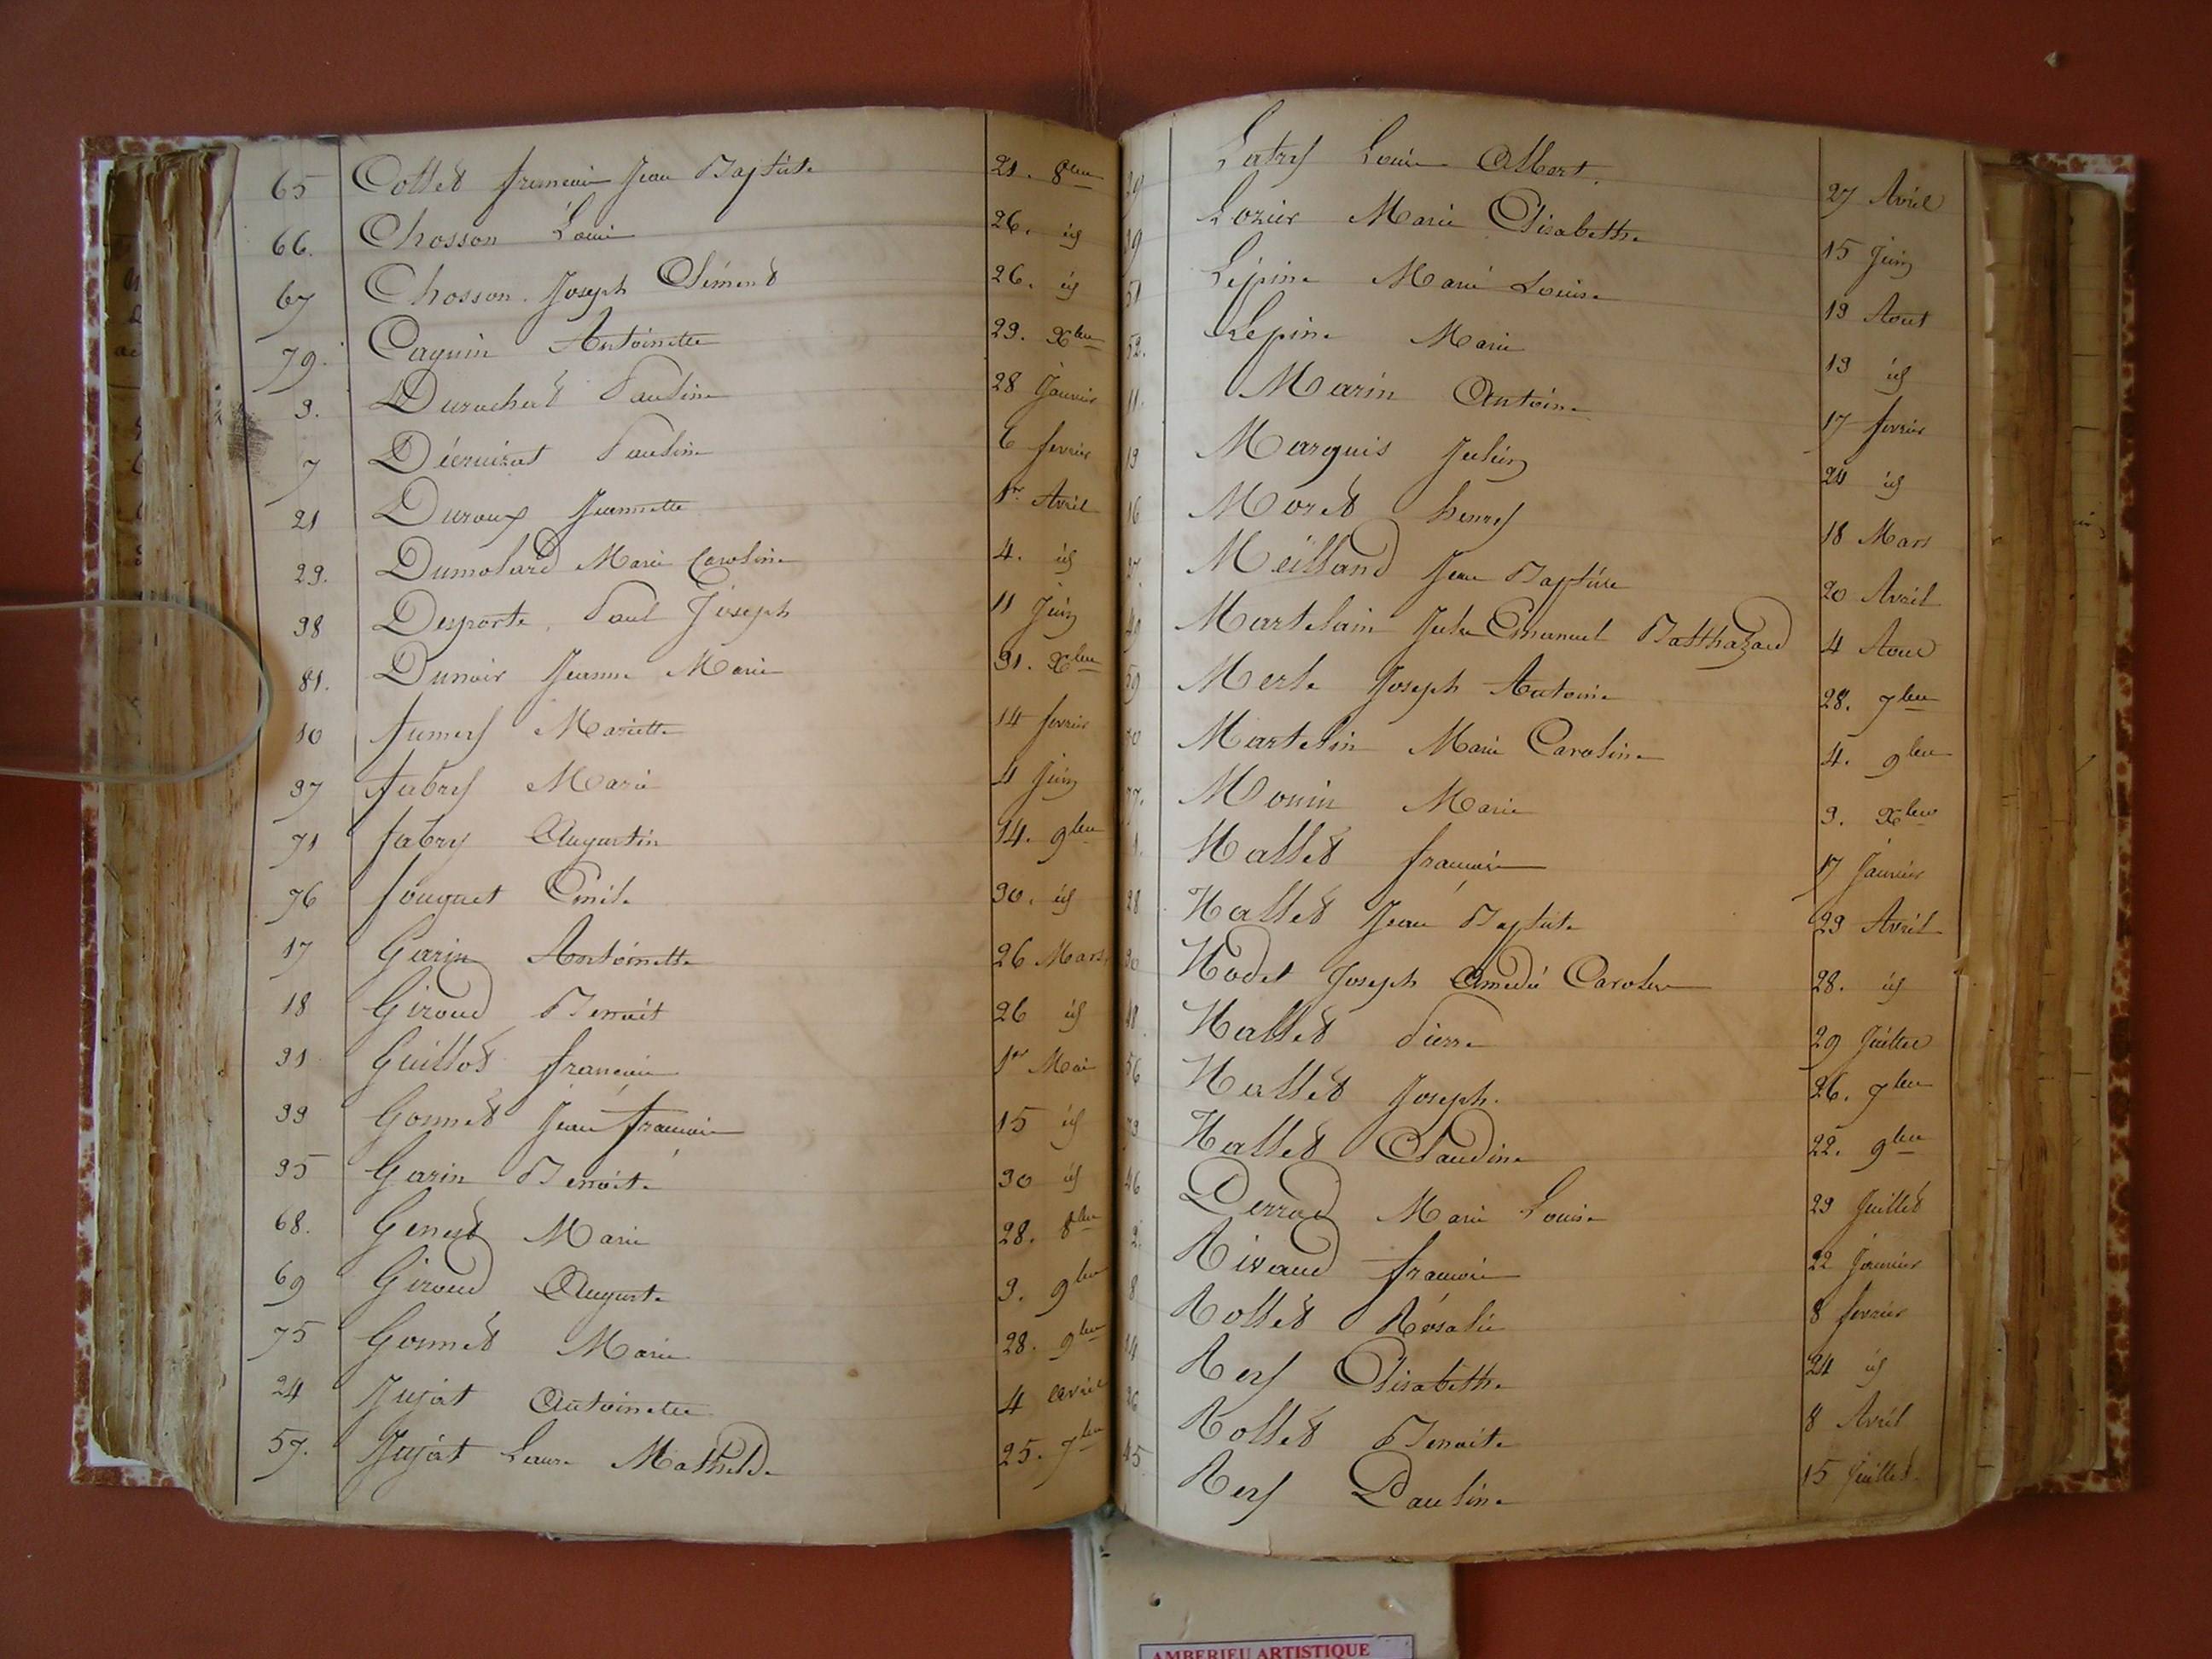 65 Collet françois Jean Baptiste 21. 8bre
66. Chosson Louis 26. id
67 Chosson Joseph Clément 26. id
79. Caquin Antoinette 29. Xbre
3. Durochat Pauline 28 Janvier
7 Pauline 6 fevrier
21 Duroux Jeannette 1er Avril
23. Dumolard Marie Caroline 4. id
38 Desporte Paul Joseph 11 Juin
81. Dunoir Jeanne Marie 31. Xbre
10 fumery Mariette 14 fevrier
37 fabry Marie 4 Juin
71 fabry Augustin 14. 9bre
76 fouquet Emile 30. id
17 Garin Antoinette 26 Mars
18 Giroud Benoit 26 id
31 Guillot françois 1er Mai
33 Gonnet Jean françois 15 id
35 Garin Benoite 30 id
68. Genest Marie 28. 8bre
69 Giroud Auguste 3. 9bre
75 Gonnet Marie 28. 9bre
24 Jujat Antoinette 4 Avril
57. Jujat Laure Mathilde 25. 7bre
29 Latry Louis Albert. 27 Avril
39 Lozier Marie Elisabeth 15 Juin
51 Lépine Marie Louise 13 Aout
52. Lepine Marie 13 id
11. Marin Antoine 17 fevrier
13 Marquis Julien 24 id
16 Moret henry 18 Mars
27. Meilland Jean Baptiste 20 Avril
49 Martelain Jules Emanuel Balthazard 4 Aout
59 Merle Joseph Antoine 28. 7bre
70 Martelin Marie Caroline 4. 9bre
77. Monin Marie 3. Xbre
1. Nallet françois 17 Janvier
28 Nallet Jean Baptiste 23 Avril
30 Nodet Joseph Amedé 28. id
48 Nallet Pierre 29 Juillet
56 Nallet Joseph. 26. 7bre
73 Nallet Claudine 22. 9bre
46 Perrad Marie Louise 23 Juillet
2. Rivaud françois 22 Janvier
8 Rollet Rosalie 8 fevrier
14 Rey Elisabeth 24 id
26 Rollet Benoite 8 Avril
45 Rey Pauline 15 Juillet
AMBERIEU ARTISTIQUE